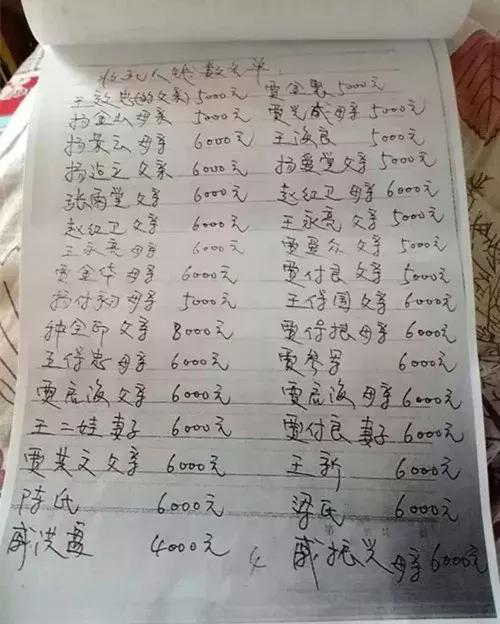 收死人钱数名单
王敬忠的父亲 5000元 贾金素 5000元
杨金山母亲 5000元 贾光威母亲 5000元
杨景云母亲 6000元 王海良 5000元
杨占立父亲 6000元 杨爱堂父亲 5000元
张雨堂父亲 6000元 赵红卫母亲 6000元
赵红卫父亲 6000元 王永亮父亲 5000元
王永亮母亲 6000元 贾爱众父亲 5000元
贾金华母亲 6000元 贾付良父亲 5000元
杨付初母亲 5000元 王保国父亲 6000元
钟全印父亲 8000元 贾保振母亲 6000元
王保忠母亲 6000元 贾参军 6000元
贾启海父亲 6000元 贾启海母亲 6000元
王二娃妻子 6000元 贾付良妻子 6000元
贾英文父亲 6000元 王新 6000元
陈氏 6000元 梁氏 6000元
戚洪霞 4000元 戚振兴母亲 6000元
4